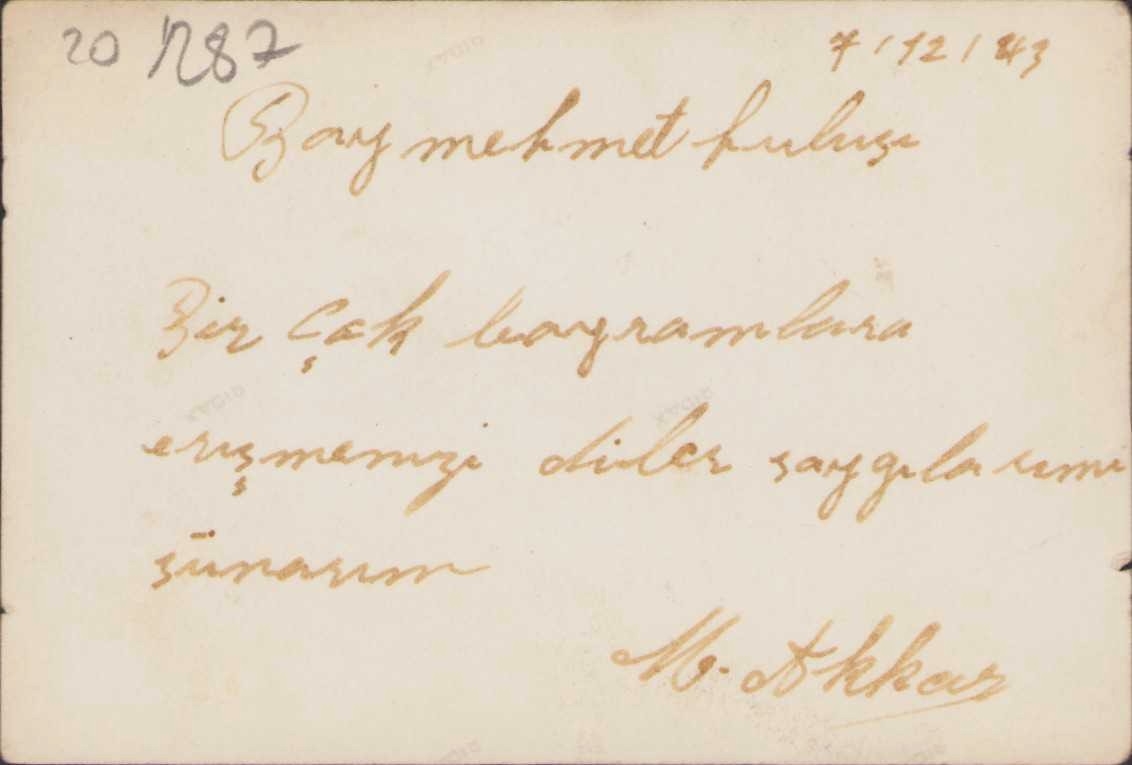 20 1287
7/12/43
Bay mehmet hulusi
Bir çok bayramlara
erişmenizi diler saygılarımı
sünarım
M. Akkar